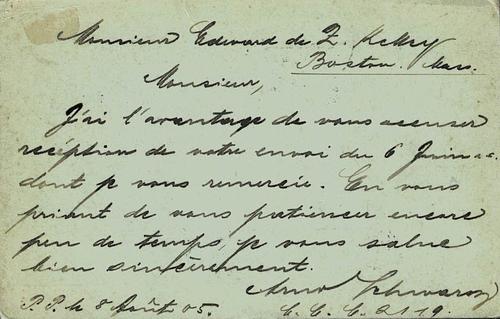 Monsieur Edward de Z. Kelley
Boston. Mass.
Monsieur,
J'ai l'avantage de vous accuser
recéption de votre envoi du 6 Juin a.c.
dont je vous remercie. En vous
priant de vous patiencer encore
peu de temps, je vous salue
bien sincèrement.
Arno Schwarz
P.P. le 8 Août 05.
C. C. C. 2119.